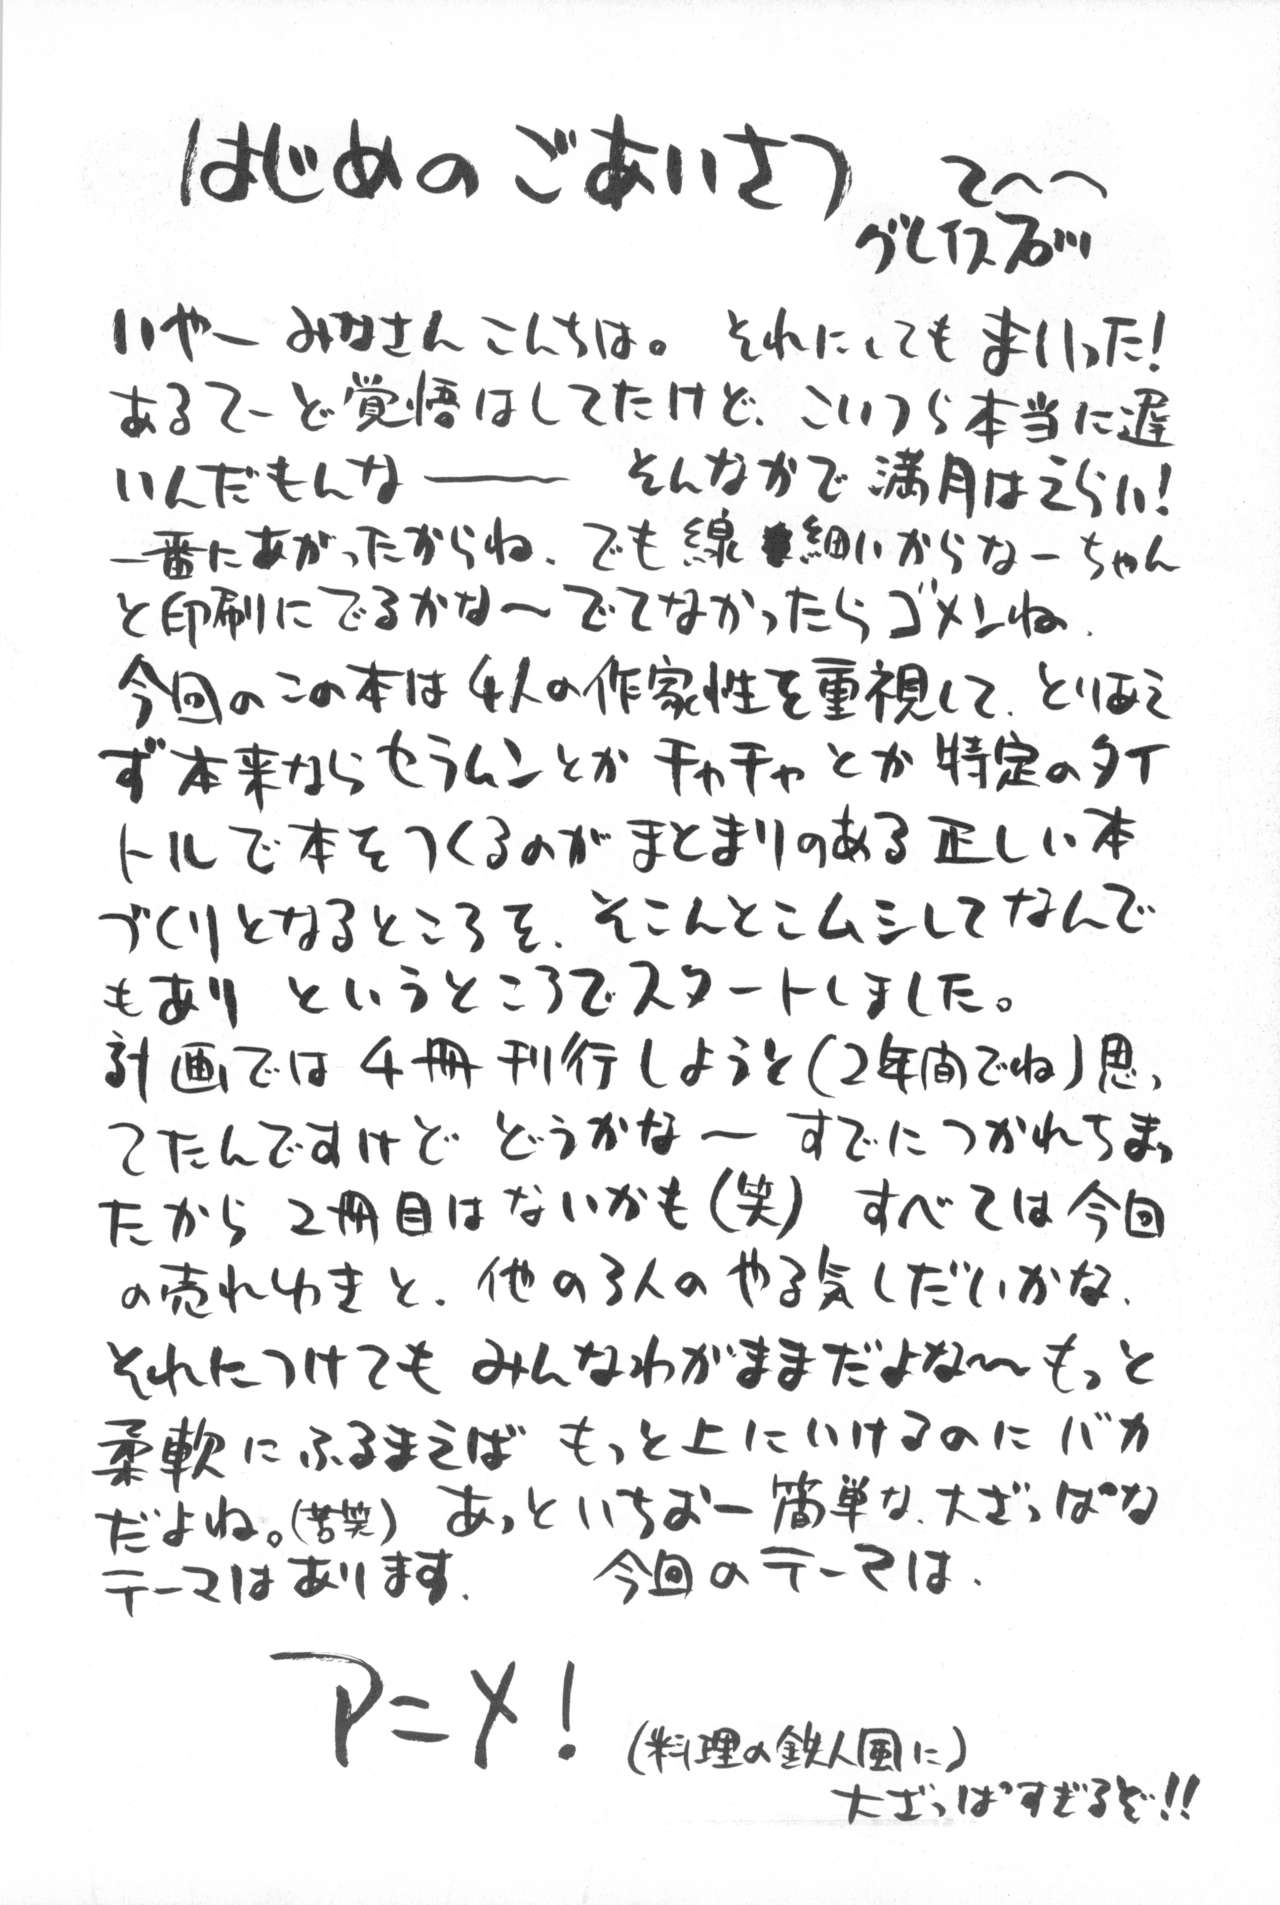 はじめのごあいさつ てへへ
グレイス
いやー みなさん こんちは。 それにしても まいった!
あるてーど覚悟はしてたけど、こいつら本当に遅
いんだもんなーー そんなかで満月はえらい!
一番にあがったからね、でも線細いからなーちゃん
と印刷にでるかな〜でてなかったらゴメンね、
今回のこの本は4人の作家性を重視して、とりあえ
ず本来ならセラムンとか チャチャとか 特定のタイ
トルで本をつくるのがまとまりのある正しい本
づくりとなるところを、そこんとこムシしてなんで
もあり というところでスタートしました。
計画では4冊刊行しようと(2年間でね)思っ
てたんですけど どうかな〜 すでにつかれちまっ
たから 2冊目はないかも(笑) すべては今回
の売れゆきと、他の3人のやる気しだいかな、
それにつけても みんなわがままだよな〜もっと
柔軟にふるまえば もっと上にいけるのにバカ
だよね。(苦笑) あっといちおー簡単な、大ざっぱな
テーマはあります、 今回のテーマは、
アニメ!
(料理の鉄人風に)
大ざっぱすぎるぞ!!